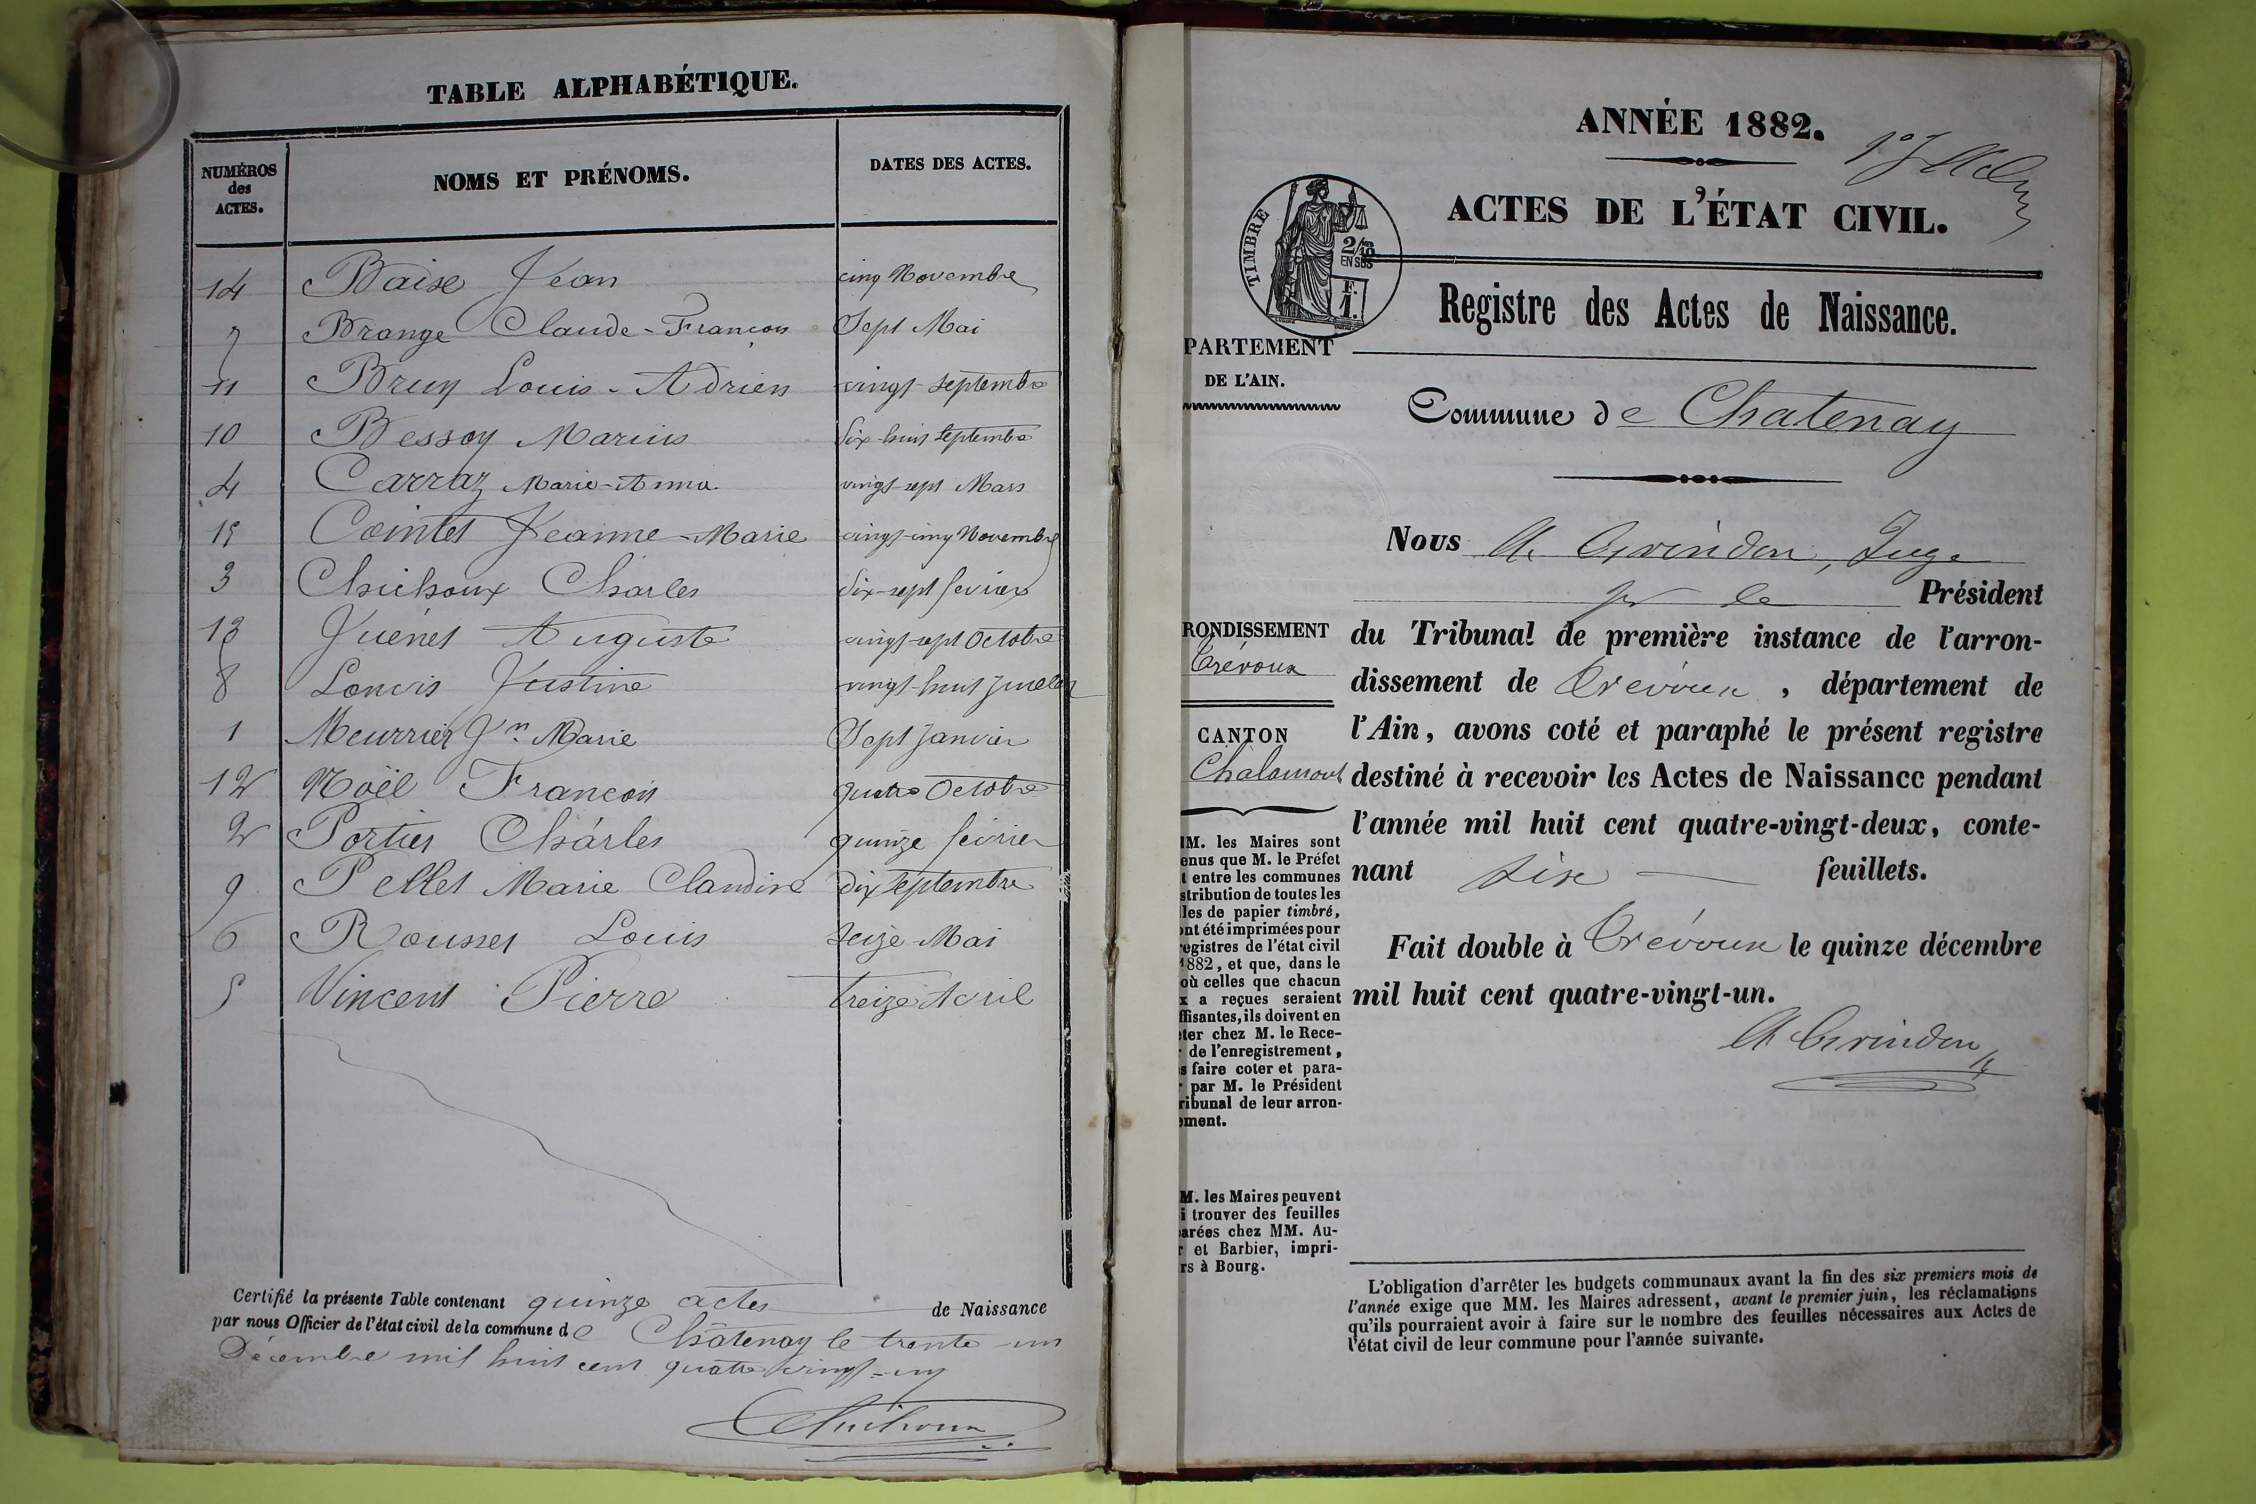 TABLE ALPHABÉTIQUE.
NUMÉROS des ACTES.
NOMS ET PRÉNOMS.
DATES DES ACTES.
14 Baise Jean cinq Novembre
7 Brange Claude-François Sept Mai
11 Bruy Louis-Adrien vingt-septembre
10 Bessoy Marius dix-huit septembre
4 Carraz Marie-Anna vingt-sept Mars
15 Cointet Jeanne-Marie vingt-cinq Novembre
3 Chichoux Charles dix-sept fevrier
13 Juénet Auguste vingt-sept Octobre
8 Loncris Justine vingt-huit Juillet
1 Meurrier Jn Marie Sept Janvier
12 Noël François quatre Octobre
2 Portier Charles quinze février
9 Pellet Marie Claudine dix septembre
6 Rousset Louis seize Mai
5 Vincent Pierre treize Avril
Certifié la présente Table contenant quinze actes de Naissance
par nous Officier de l'état civil de la commune de Châtenay le trente-un
Décembre mil huit cent quatre vingt-un
Chichoux
ANNÉE 1882.
ACTES DE L'ÉTAT CIVIL.
TIMBRE
2/10
EN SUS
F.
1.
Registre des Actes de Naissance.
PARTEMENT
DE L'AIN.
Commune de Chatenay
Nous A. Grindon, Juge
pr le Président
RONDISSEMENT
Trévoux
CANTON
Chalamont
du Tribunal de première instance de l'arron-
dissement de Trévoux, département de
l'Ain, avons coté et paraphé le présent registre
destiné à recevoir les Actes de Naissance pendant
l'année mil huit cent quatre-vingt-deux, conte-
nant six feuillets.
Fait double à Trévoux le quinze décembre
mil huit cent quatre-vingt-un.
A Grindon
M. les Maires sont
enus que M. le Préfet
t entre les communes
stribution de toutes les
les de papier timbré,
ont été imprimées pour
egistres de l'état civil
1882, et que, dans le
où celles que chacun
x a reçues seraient
ffisantes, ils doivent en
ter chez M. le Rece-
de l'enregistrement,
s faire coter et para-
par M. le Président
ribunal de leur arron-
ement.
M. les Maires peuvent
i trouver des feuilles
parées chez MM. Au-
r et Barbier, impri-
rs à Bourg.
L'obligation d'arrêter les budgets communaux avant la fin des six premiers mois de
l'année exige que MM. les Maires adressent, avant le premier juin, les réclamations
qu'ils pourraient avoir à faire sur le nombre des feuilles nécessaires aux Actes de
l'état civil de leur commune pour l'année suivante.